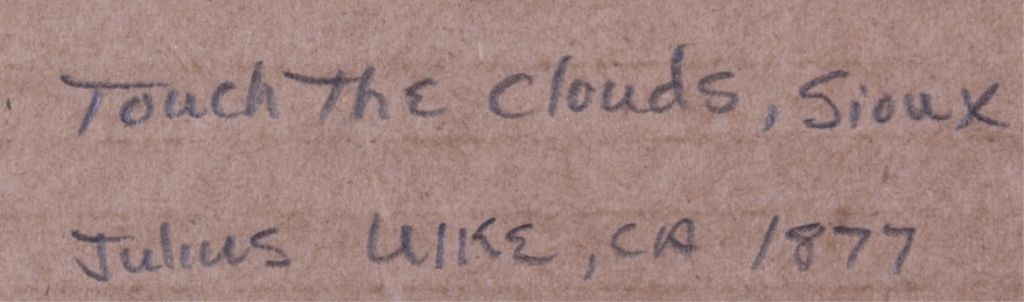 Touch The Clouds, Sioux
Julius UlKE, CA 1877